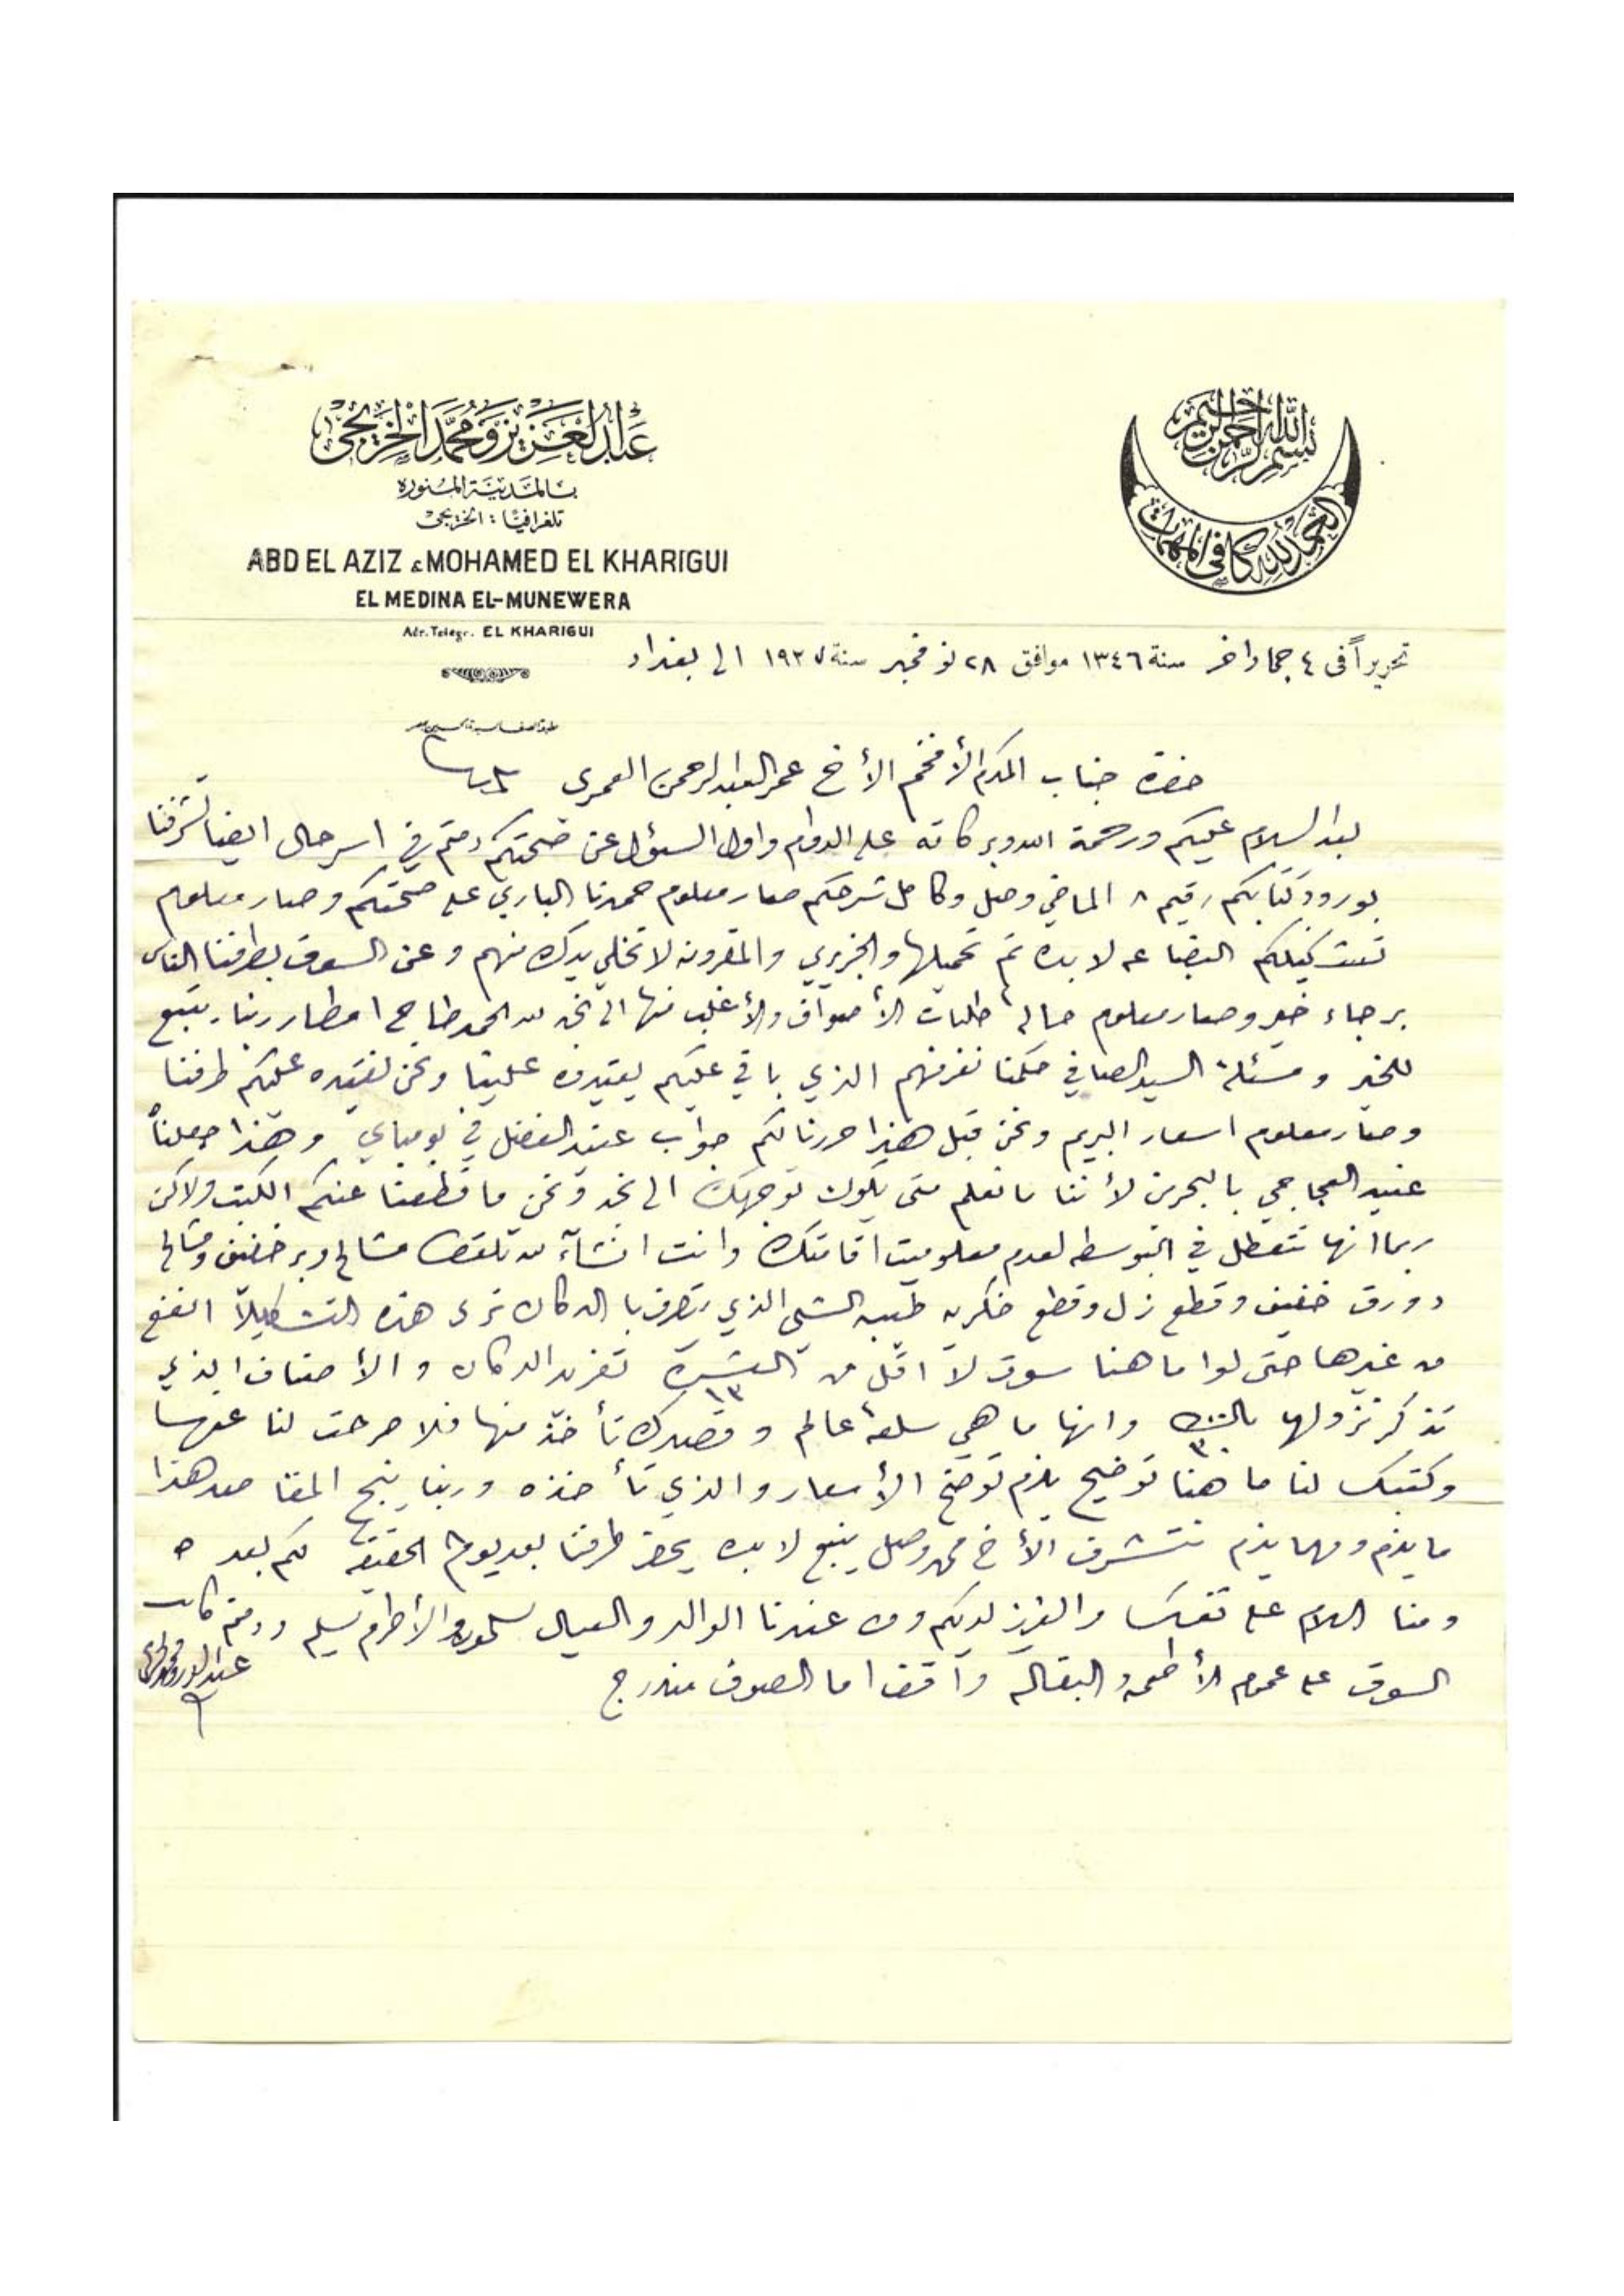 بسم الله الرحمن الرحيم
الحمد لله كافي المهمات
عبد العزيز ومحمد الخريجي
بالمدينة المنورة
تلغرافيا: الخريجي
ABD EL AZIZ & MOHAMED EL KHARIGUI
EL MEDINA EL-MUNEWERA
Adr. Telegr. EL KHARIGUI
تحريراً في ٤ جماد اخر سنة ١٣٤٦ موافق ٢٨ نوفمبر سنة ١٩٢٧ الى بغداد
حضرة جناب المكرم الأفخم الأخ عمر العبدالرحمن العمري
بعد السلام عليكم ورحمة الله وبركاته على الدوام واول السئوال عن صحتكم دمتم في اسر حال ايضا تشرفنا
بورود كتابكم رقيم ٨ الماضي وصل وكامل شرحكم صار معلوم حمدنا الباري على صحتكم وصار معلوم
البضاعه لابده تم تحميلها والجزيري والمقرونه لا تخلي يدك منهم وعن السوق بطرفنا الناس
برجاء خير وصار معلوم حالة طلبات الأصواف والأغلب منها الى نجد لله الحمد طاح امطار ربنا يتبع
للخير ومسئلة السيد الصافي حكمنا نفرفهم الذي باقي عليكم يقيدوه علينا ونحن نقيده عليكم طرفنا
وصار معلوم اسعار البريم ونحن قبل هذا حررنا لكم جواب عنيد الفضل في بومباي وهذا جعلناه
عنيد العجاجي بالبحرين لأننا ما نعلم متى يكون توجهك الى نجد ونحن ما قطعنا عنكم الكتب ولاكن
ربما انها تتعطل في البوسطه لعدم معلوميت اقامتك وانت انشآء الله تلقط مشالح وبر خفيف ومشالح
دورق خفيف وقطع زل وقطع فكريه طيبه الشي الذي يتصرف با الدكان ترى هذه التشكيلا انفع
من غيرها حتى لوا ما هنا سوق لا اقل من العشرة ١٣ تفرد الدكان والأصناف الذي
تذكر نزولها بالثلث ٣٠ وانها ما هي سلعة عالم وقصدك تأخذ منها فلا صرحت لنا عنها
وكتبك لنا ما هنا توضيح يلزم توضح الأسعار والذي تأخذه وربنا ينجح المقاصد هذا
ما يلزم ومهما يلزم نتشرف الأخ محمد وصل ينبع لابده يحضر طرفنا بعد يوم الحقيقه لكم بعده
ومنا السلام على نفسك والعزيز لديكم ومن عندنا الوالد والعيال يسلمون والأطرم يسلم ودمتم كاتب
السوق على عموم الأطعمه والبقاله واقف اما الصوف مندرج